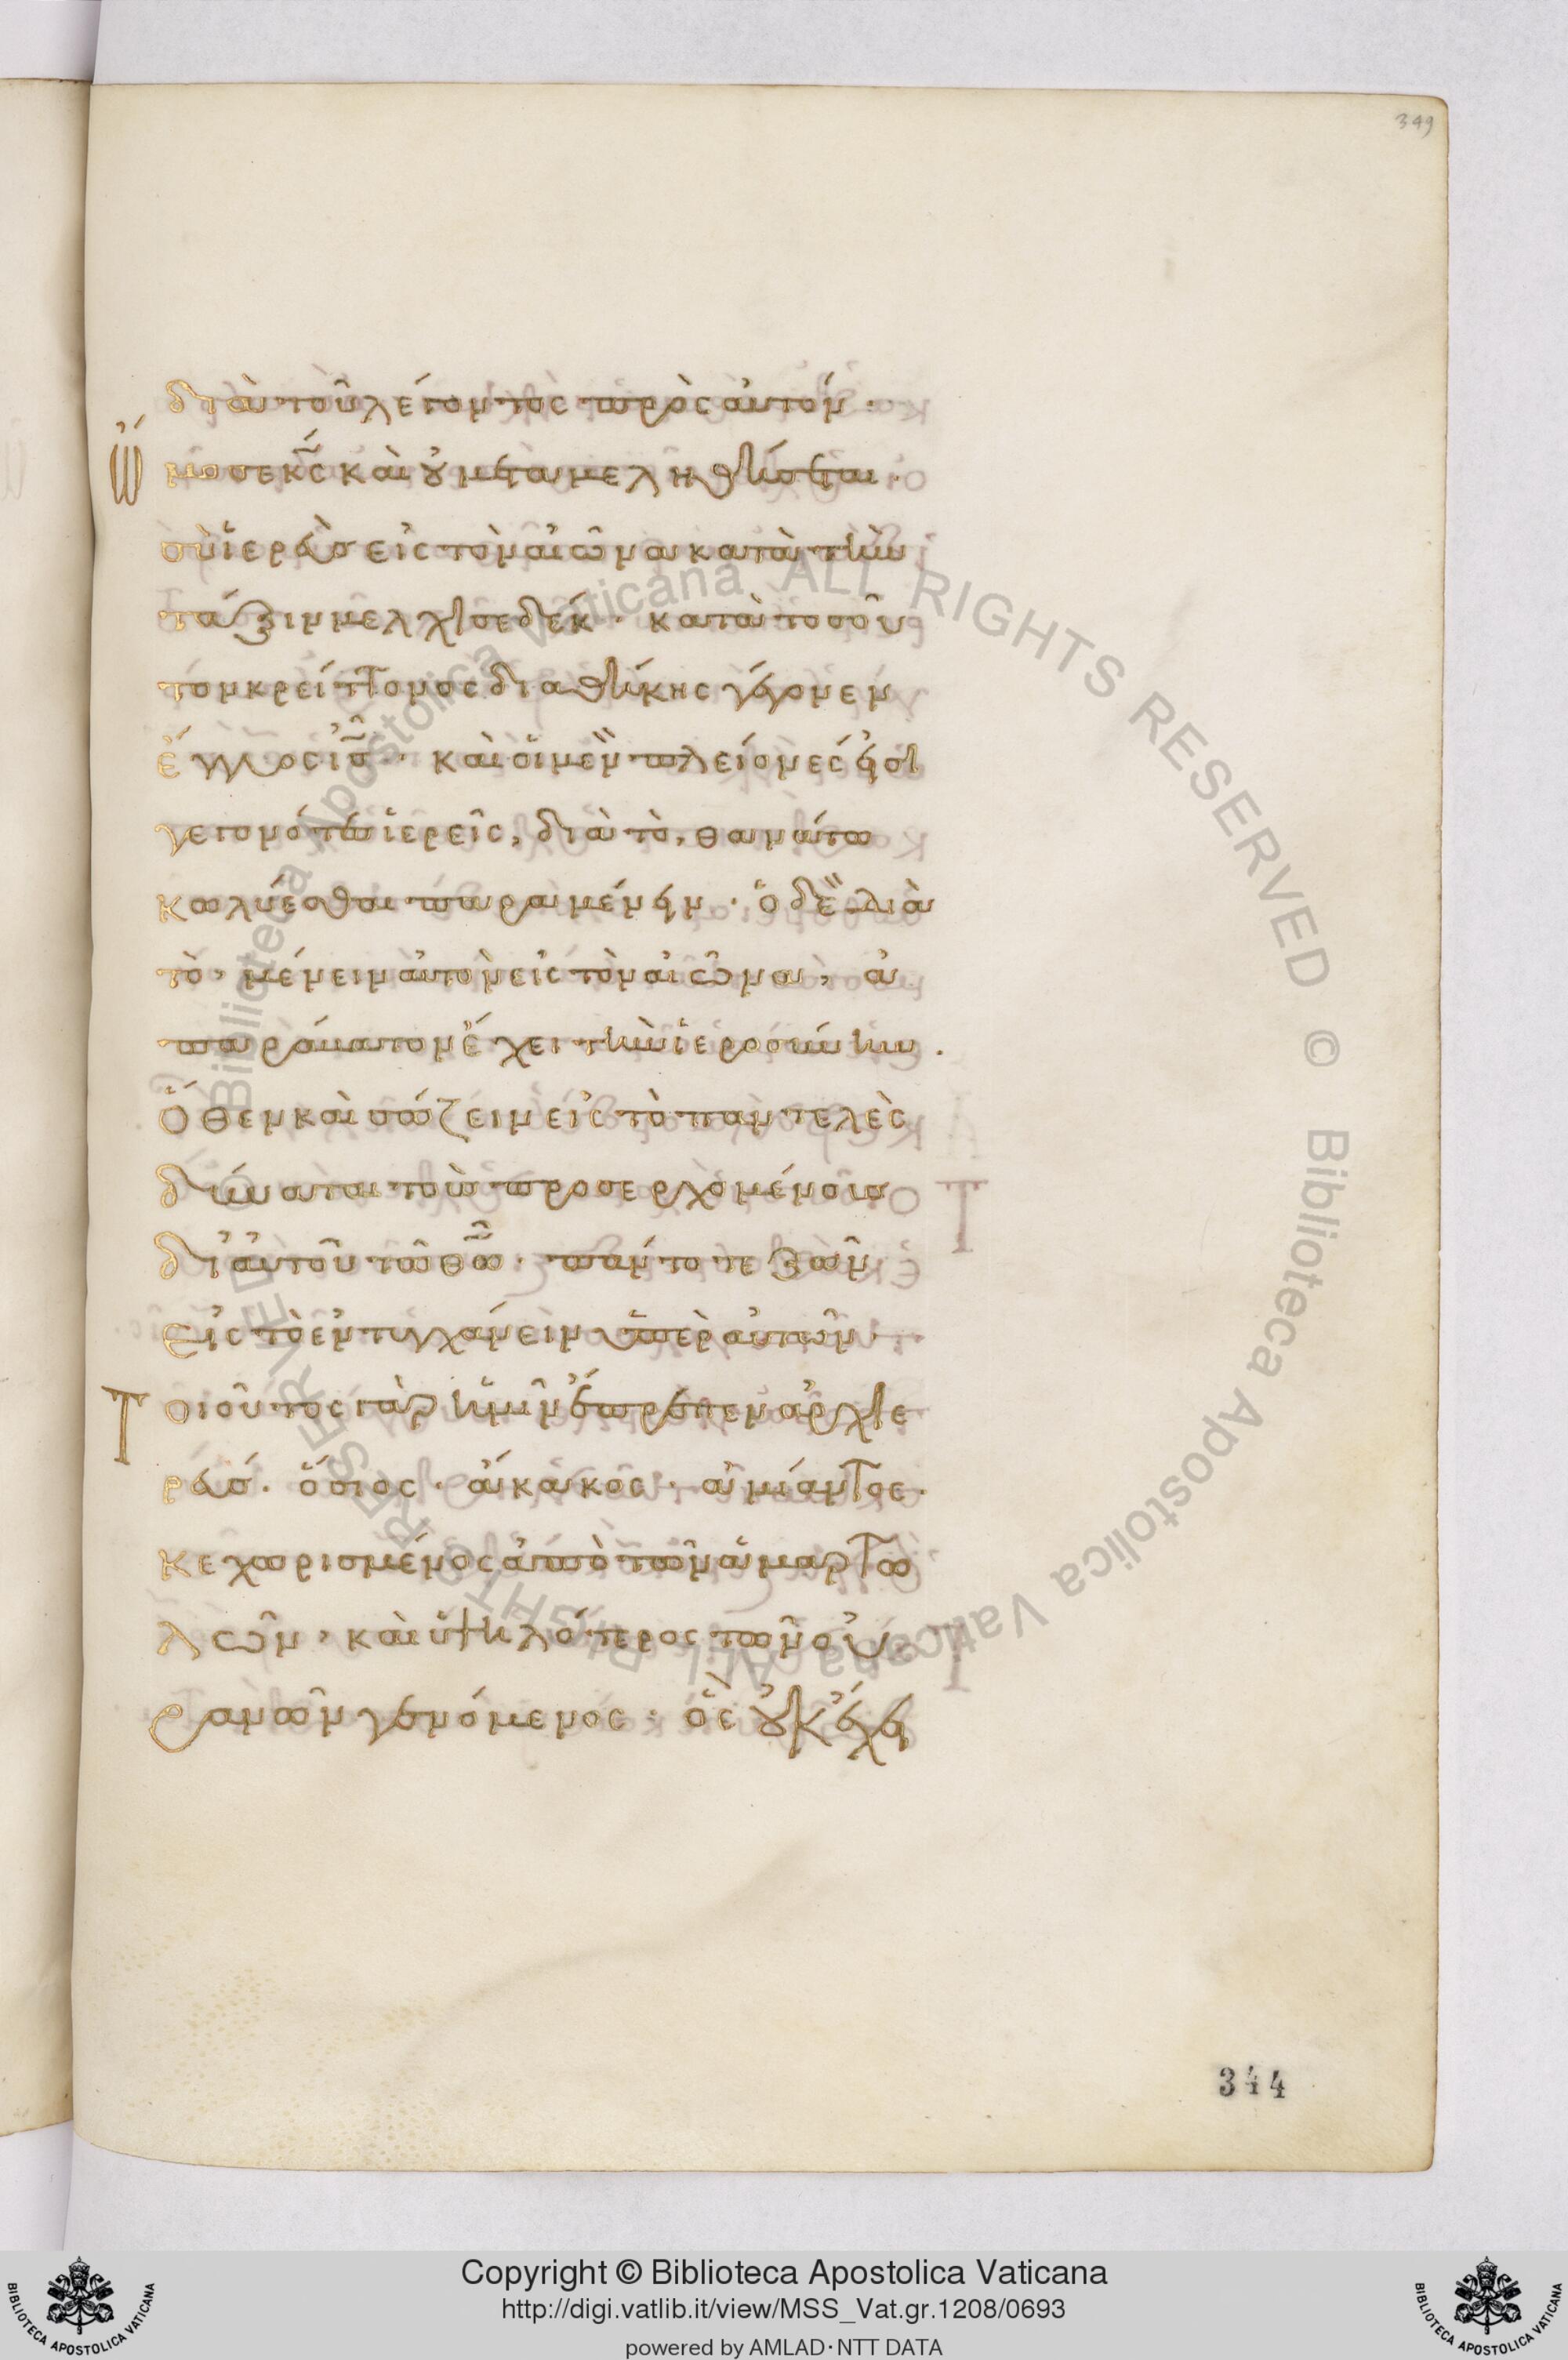 349
διὰ τοῦ λέγοντος πρὸς αὐτόν·
Ὤμοσε κ̅ς̅ καὶ οὐ μεταμεληθήσεται·
σὺ ἱερεὺς εἰς τὸν αἰῶνα κατὰ τὴν
τάξιν μελχισεδέκ· κατὰ τοσοῦ
τον κρείττονος διαθήκης γέγονεν
ἔγγυος ι̅ς̅· καὶ οἱ μὲν πλείονές εἰσι
γεγονότες ἱερεῖς, διὰ τὸ, θανάτω
κωλύεσθαι παραμένειν· ὁ δὲ διὰ
τὸ, μένειν αὐτὸν εἰς τὸν αἰῶνα, ἀ
παράβατον ἔχει τὴν ἱεροσύνην.
Ὅθεν καὶ σώζειν εἰς τὸ παντελὲς
δύναται τοὺς προσερχομένους
δι' αὐτοῦ τῶ θ̅ω̅· πάντοτε ζῶν
εἰς τὸ ἐντυγχάνειν ὑπὲρ αὐτῶν·
Τοιοῦτος γὰρ ἡμῖν ἔπρεπεν ἀρχιε
ρεύς· ὅσιος· ἄκακος· ἀμίαντος·
κεχωρισμένος ἀπὸ τῶν ἁμαρτω
λῶν, καὶ ὑψηλότερος τῶν οὐ
ρανῶν γενόμενος· ὃς οὐκ ἔχει
344
Biblioteca Apostolica Vaticana ALL RIGHTS RESERVED © Biblioteca Apostolica Vaticana ALL RIGHTS RESERVED
BIBLIOTECA APOSTOLICA VATICANA
Copyright © Biblioteca Apostolica Vaticana
http://digi.vatlib.it/view/MSS_Vat.gr.1208/0693
powered by AMLAD·NTT DATA
BIBLIOTECA APOSTOLICA VATICANA